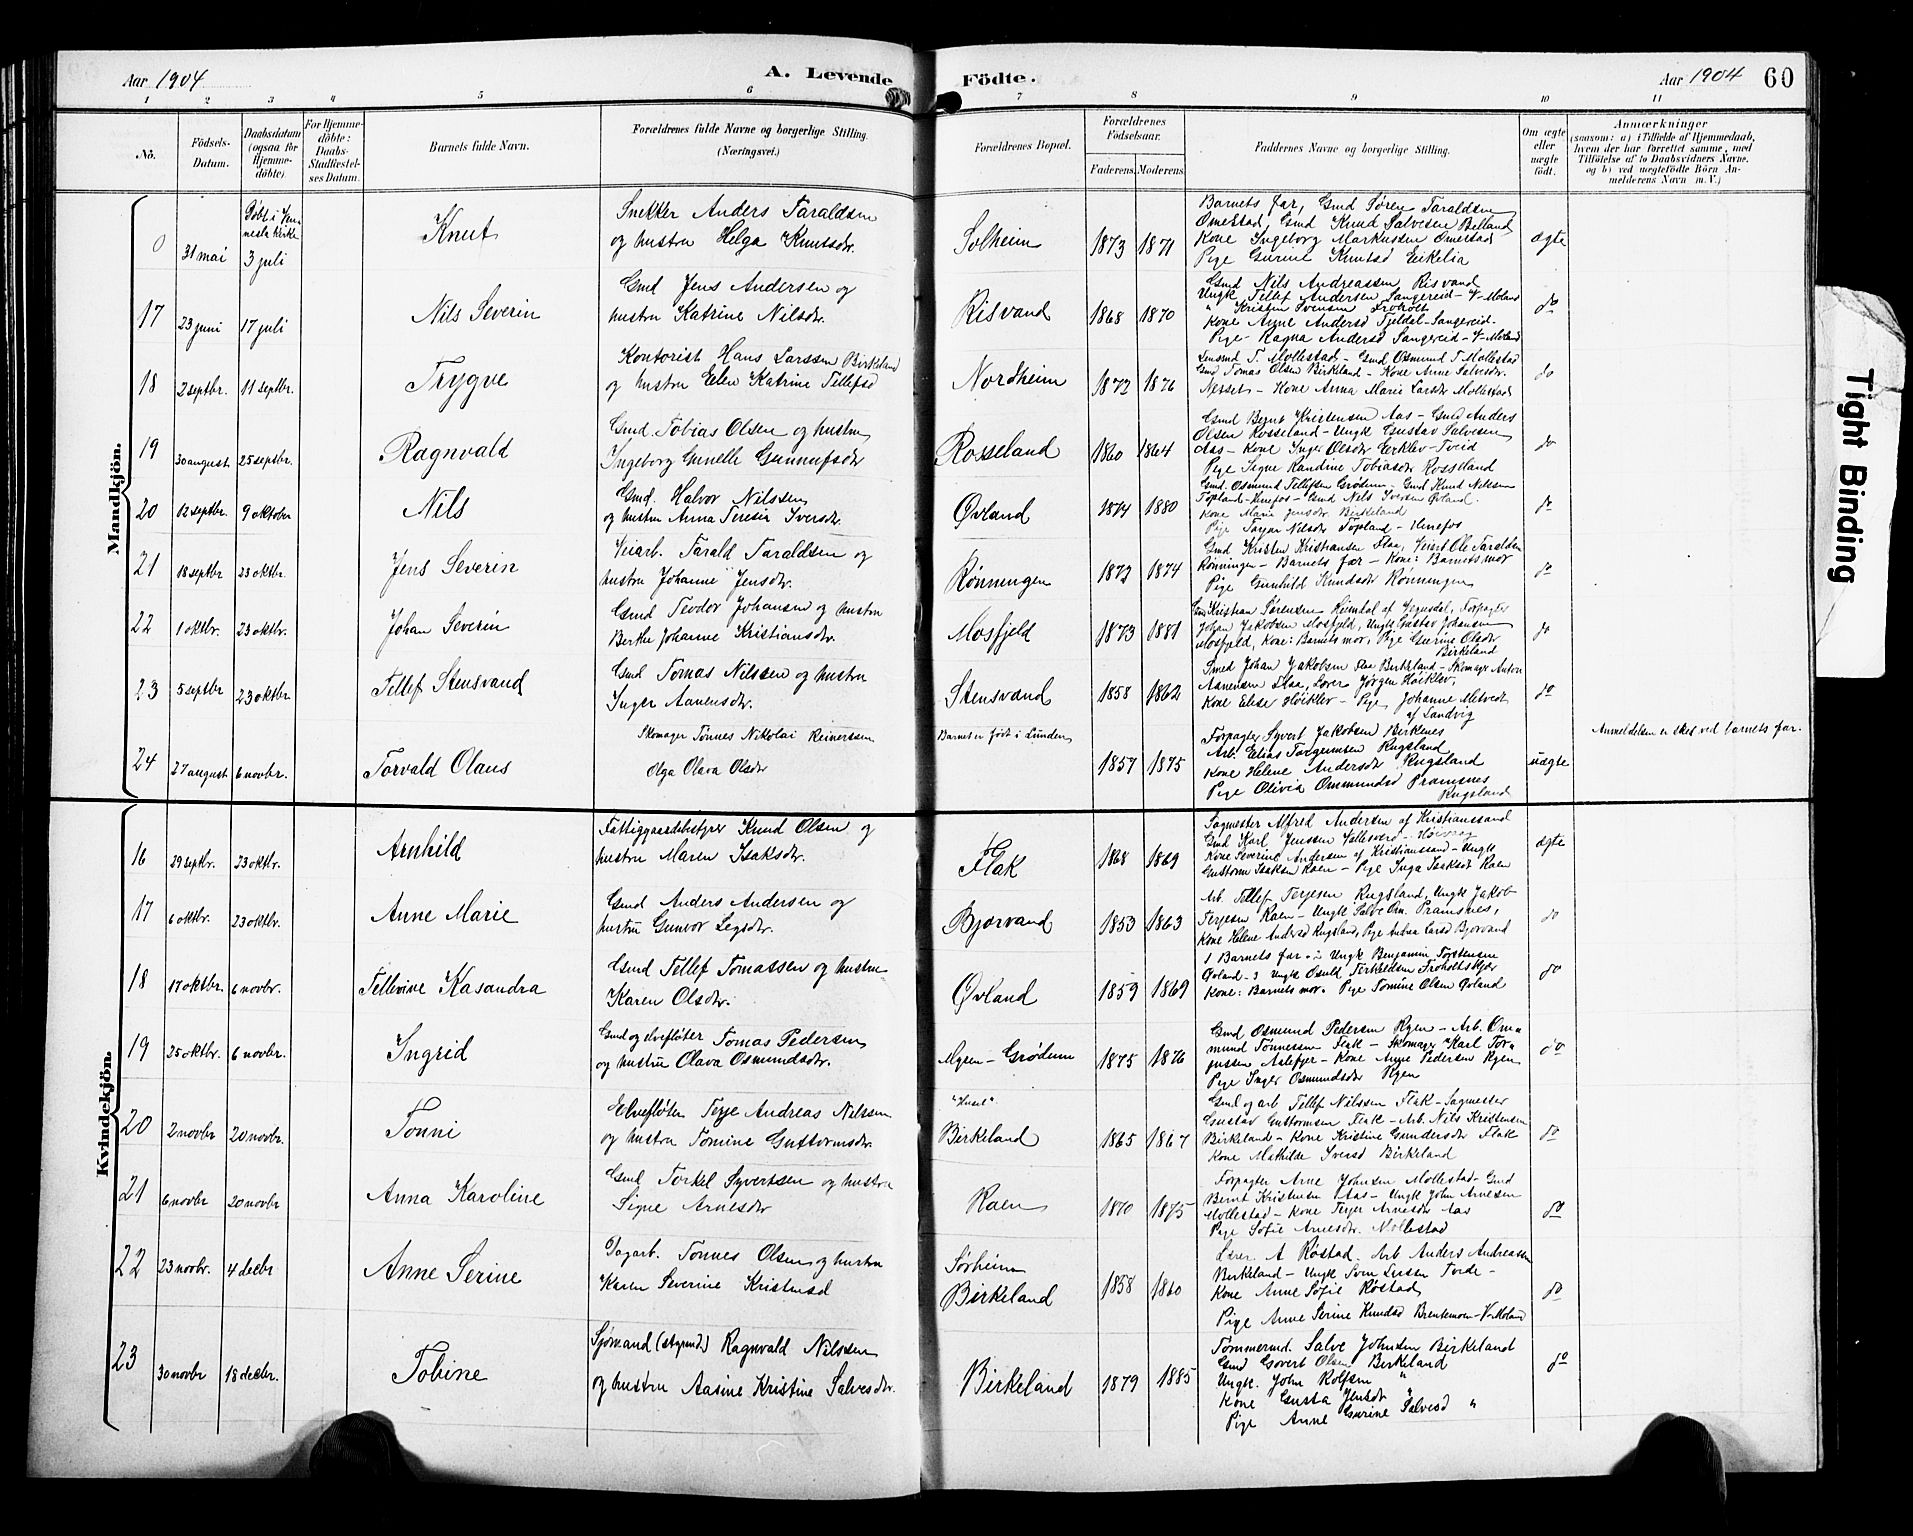 Aar 1904
A. Levende
Födte.
Aar 1904
60
1 2 3 4 5 6 7 8 9 10 11
No.
Födsels-Datum.
Daabsdatum (ogsaa for Hjemme-döbte)
For Hjemme-döbte: Daabs-Stadfæstel-ses Datum.
Barnets fulde Navn.
Forældrenes fulde Navne og borgerlige Stilling.
(Næringsvei.)
Forældrenes Bopæl.
Forældrenes Födselsaar.
Faderens. Moderens.
Faddernes Navne og borgerlige Stilling.
Om ægte eller uægte födt.
Anmærkninger
(saasom: a) i Tilfælde af Hjemmedaab,
hvem der har forrettet samme, med
Tilföielse af to Daabsvidners Navne.
og b) ved uægtefödte Börn An-
melderens Navn m. V.)
Mandkjön.
0
31 mai
Döbt i Ven
nesla kirke
3 juli
Knut
Snekker Anders Taraldsen
og hustru Helga Knutsdr.
Solheim
1873 1871
Barnets far, Gmd Søren Taraldsen
Omestad, Gmd Knud Salvesen Belland
Kone Ingeborg Markussen Omestad
Pige Gurine Knutsd Eikelia
ægte
17
23 juni 17 juli
Nils Severin
Gmd Jens Andersen og
hustru Katrine Nilsdr.
Risvand
1868 1870
Gmd Nils Andreassen Risvand
Ungk Tellef Andersen Sangereid - V-Moland
" Kristen Svensen
Kone Anne Andersd Tjeldal - Sangereid.
Pige Ragna Andersd Sangereid - V-Moland
do
18
2 septbr. 11 septbr.
Trygve
Kontorist Hans Larssen Birkeland
og hustru Elen Katrine Tellefsd
Nordheim
1872 1876
Lensmd T. Mollestad - Gmd Osmund T. Mollestad
Gmd Tomas Olsen Birkeland - Kone Anne Salvesdr.
- Kone Anna Marie Larsdr Mollestad
do
19
30 august 25 septbr.
Ragnvald
Gmd. Tobias Olsen og hustru
Ingeborg Gunelle Gunnufsdr
Rosseland
1860 1864
Gmd Bernt Kristensen Aas - Gmd Anders
Olsen Rosseland - Ungk Gustav Salvesen
Aas - Kone Inge Olsdr - Tveid
Pige Signe Kandine Tobiasdr Rosseland
do
20
12 septbr. 9 oktober
Nils
Gmd. Halvor Nilssen
og hustru Anna Teresia Iversdr.
Øvland
1874 1880
Gmd. Osmund Tellefsen Grødum - Gmd Knud Nilssen
Topland - Herefos - Gmd Nils Iversen Øvland.
Kone Marie Jensdr. Birkeland
Pige Targer Nilsdr Topland - Herefos
do
21
18 septbr 23 oktbr.
Jens Severin
Veiarb. Tarald Taraldsen og
hustru Johanne Jensdr.
Rønningen
1872 1874
Gmd Kristen Kristiansen Flaa, Veiarb Ole Taraldsen
Rønningen - Barnets far - Kone: Barnets mor
Pige Gunhild Knudsdr Rønningen
do
22
1 oktbr. 23 oktbr.
Johan Severin
Gmd Teodor Johansen og hustru
Berthe Johanne Kristiansdr.
Mosfjeld
1873 1881
Gmd Kristian Sørensen Heimdal af Vegusdal, Forpagter
Johan Jakobsen Mosfjeld, Ungk Gustav Johansen
Mosfjeld, Kone: Barnets mor, Pige Gurine Olsdr
Birkeland
do
23
5 septbr 23 oktbr.
Tellef Stensvand
Gmd Tomas Nilssen og hustru
Inger Aanensdr.
Stensvand
1858 1862
Smed Johan Jakobsen Flaa Birkeland - Skomager Anton
Aanensen Flaa, Lærer Jørgen Høiklev,
Kone Elise Høiklev - Pige Johanne Mitvedt
af Landvig
do
24
27 august 6 novbr.
Torvald Olaus
Skomager Tønnes Nikolai Reinertssen
Olga Olava Olsdr
Barnet er født i Lunden
1857 1875
Forpagter Syvert Jakobsen Birkenes
Arb. Elias Torgeumsen Rugsland
Kone Helene Andersdr Rugsland
Pige Olivia Ommundsd Pramsnes
Rugsland
uægte
Anmeldelsen er sked ved barnets far.
Kvindekjön.
16
29 septbr. 23 oktbr.
Arnhild
Fattiggaardsbestyrer Knud Olsen og
hustru Maren Isaksdr.
Flak
1868 1869
Sagmester Alfred Andersen af Kristianssand
Gmd Karl Jenssen Vallesverd - Høivaag
Kone Severine Andersen af Kristianssand - Ungk
Guttorm Isaksen Raen - Pige Inga Isaksdr Raen
ægte
17
6 oktbr. 23 oktbr.
Anne Marie
Gmd Anders Andersen og
hustru Gunvor Legsdr.
Bjorvand
1853 1863
Arb. Tellef Terjesen Rugsland, Ungk Jakob
Terjesen Raen - Ungk Salve Om. Pramsnes,
Kone Helene Andersd Rugsland, Pige Andrea Larsd Bjorvand
do
18
17 oktbr. 6 novbr.
Tellevine Kasandra
Gmd Tellef Tomassen og hustru
Karen Olsdr.
Øvland
1859 1869
1 Barnets far. 2 Ungk Benjamin Torstensen
Øvland - 3 Ungk Osuld Terkeldsen Froholtskjær
Kone: Barnets mor. Pige Tomine Olsen Øvland
do
19
25 oktbr. 6 novbr.
Ingrid
Gmd og elvefløter Tomas Pedersen
og hustru Olava Osmundsdr.
Myren - Grødum
1875 1876
Gmd Osmund Pedersen Rgen - Arb. Om-
mund Tønnessen Flak - Skomager Karl Tor-
jussen Aslefjer - Kone Anne Pedersen Rgen
Pige Inger Osmundsdr Rgen
do
20
2 novbr 20 novbr.
Tonni
Elvefløter Terje Andreas Nilssen
og hustru Tomine Guttormsdr.
Birkeland
1865 1867
Gmd og arb Tellef Nilssen Flak - Sagmester
Gustav Guttormsen Flak - Arb. Nils Kristensen
Birkeland - Kone Kristine Gundersdr Flak
Kone Mathilde Iversd Birkeland
do
21
6 novbr 20 novbr
Anna Karoline
Gmd Torkel Syvertsen og hustru
Signe Arnesdr
Raen
1870 1875
Forpagter Arne Johnsen Mollestad - Gmd
Bernt Kristensen Aas - Ungk John Arnesen
Mollestad - Kone Terjer Arnesdr Aas
Pige Sofie Arnesdr. Mollestad
do
22
23 novbr. 4 decbr
Anne Serine
Dagarb. Tønnes Olsen og hustru
Karen Severine Kristensd
Sørheim
Birkeland
1858 1860
Lærer A Røstad. Arb Anders Andreassen
Birkeland - Ungk Sven Larsen Tveide -
Kone Anne Sofie Røstad
Pige Anne Serine Knudsd Brentemoen - V-Moland
do
23
30 novbr 18 decbr.
Tobine
Sjømand (styrmd) Ragnvald Nilssen
og hustru Aasine Kristine Salvesdr.
Birkeland
1879 1885
Tømmermd. Salve Johnsen Birkeland
Gmd Govert Olsen Birkeland
Ungk. John Rolfsen "
Kone Gusta Jensdr "
Pige Anne Gurine Salvesd "
do
Tight Binding